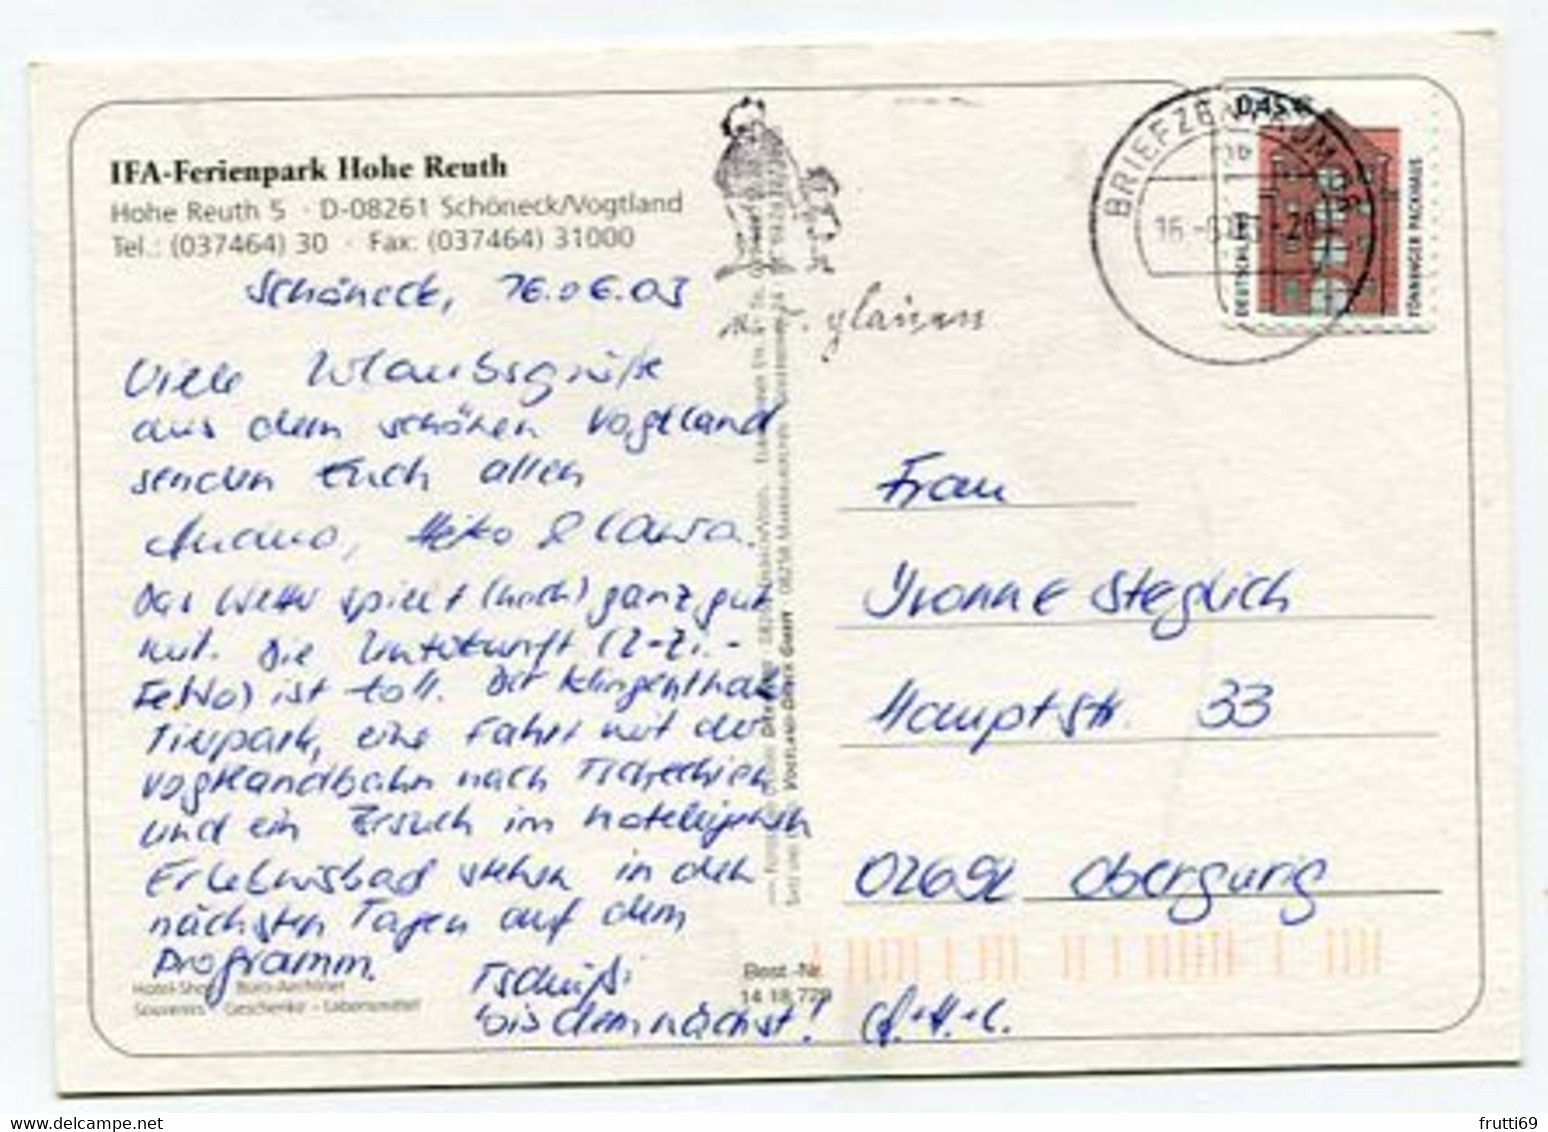 IFA-Ferienpark Hohe Reuth
Hohe Reuth 5 · D-08261 Schöneck/Vogtland
Tel.: (037464) 30 · Fax: (037464) 31000
Schöneck, 16.06.03
Viele Urlaubsgrüße
aus dem schönen Vogtland
senden Euch allen
Heiko & Laura.
Das Wetter spielt (noch) ganz gut
mit. Die Unterkunft (2-Zi.-
FeWo) ist toll. Der Klingenthaler
Tierpark, eine Fahrt mit der
Vogtlandbahn nach Tschechien
und ein Besuch im hoteleigenen
Erlebnisbad stehen in den
nächsten Tagen auf dem
Programm.
Tschüß!
bis demnächst!
Hotel-Shop
Souvenirs - Geschenke - Lebensmittel
Best.-Nr.
14 18 779
VOGTLAND-DRUCK GMBH
BRIEFZENTRUM
16.-
0,45 €
DEUTSCHLAND
TÖNNINGER PACKHAUS
Frau
Yvonne Steglich
Hauptstr. 33
02692 Obergurig
frutti69